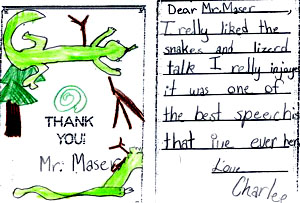 THANK
YOU!
Mr. Maser
Dear Mr. Maser,
I relly liked the
snakes and lizerd
talk I relly injoyed
it was one of
the best speechis
that ive ever herd
Love
Charlee